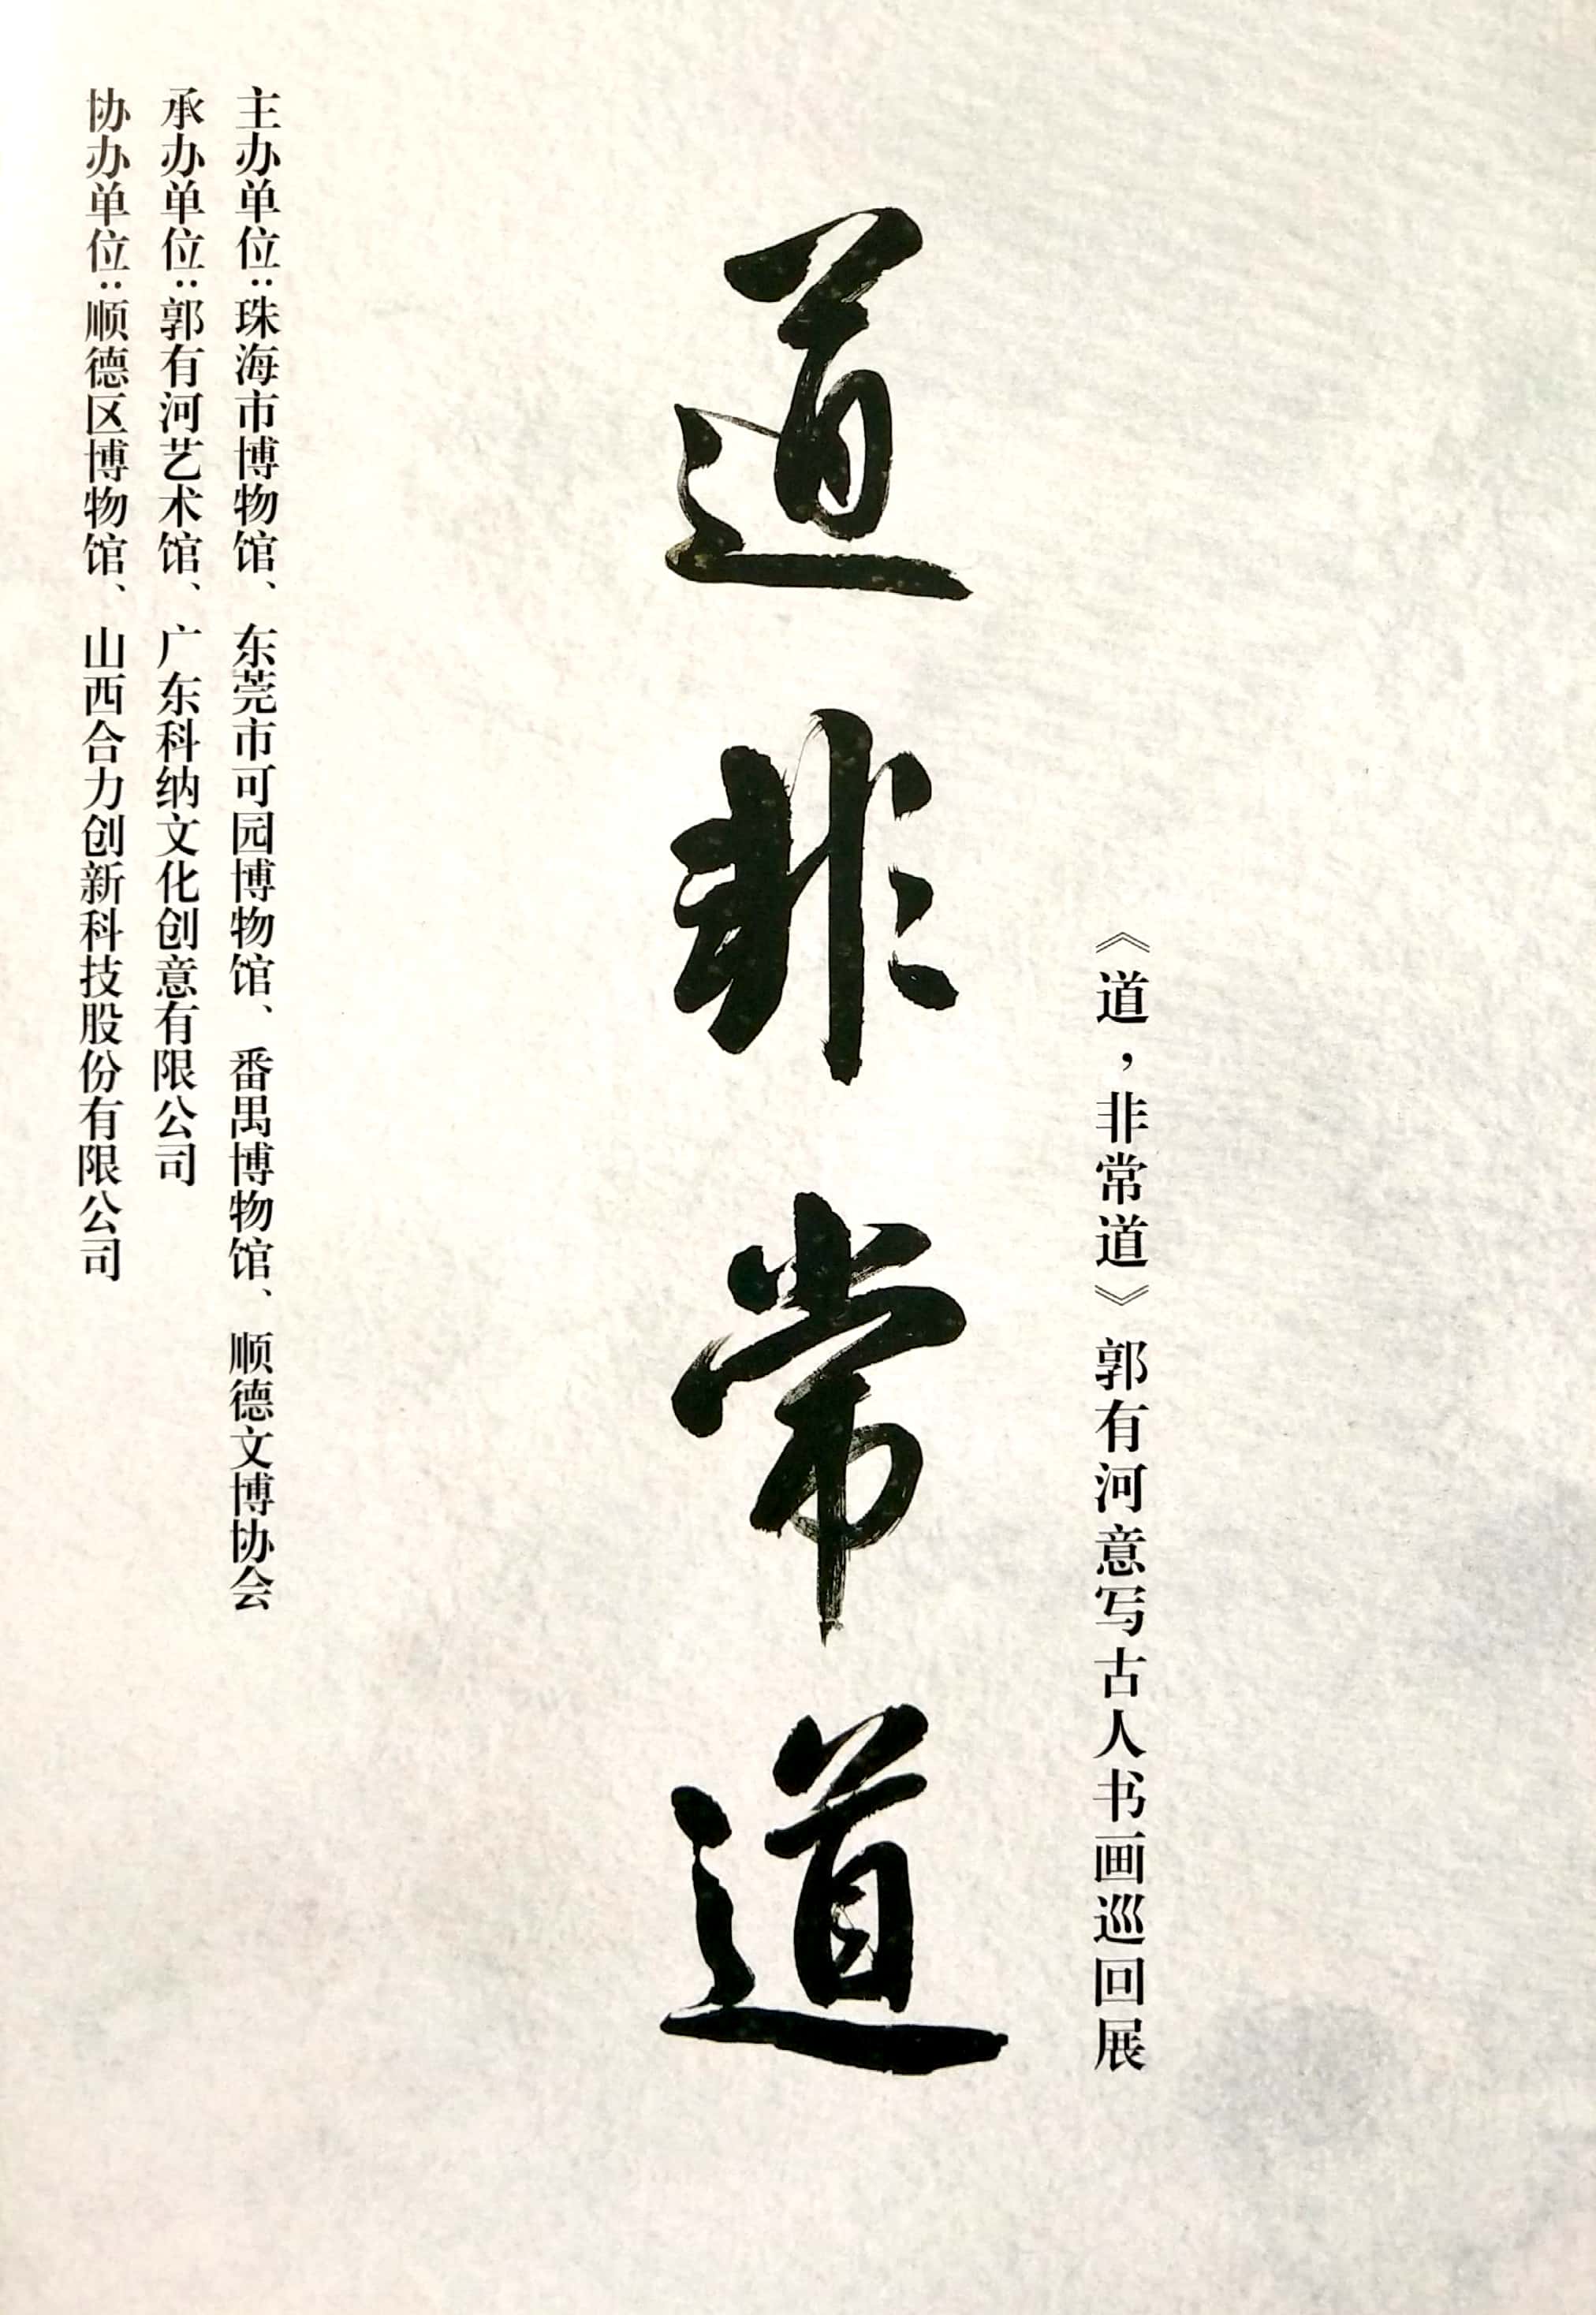 《道，非常道》郭有河意写古人书画巡回展
道非常道
主办单位：珠海市博物馆、东莞市可园博物馆、番禺博物馆、顺德文博协会
承办单位：郭有河艺术馆、广东科纳文化创意有限公司
协办单位：顺德区博物馆、山西合力创新科技股份有限公司